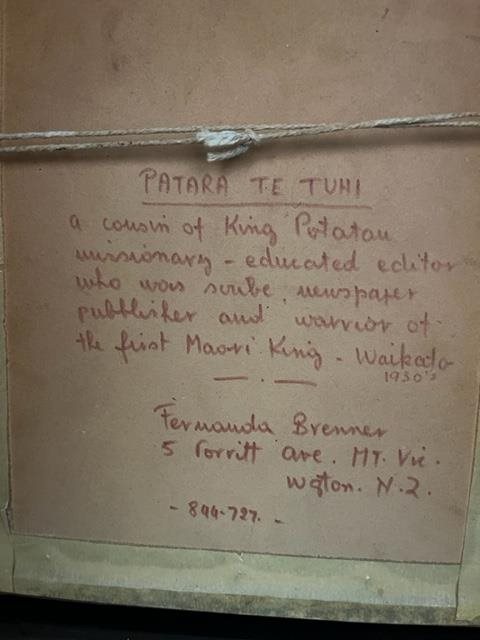 PATARA TE TUHI
a cousin of King Potatau
missionary - educated editor
who was scribe, newspaper
pubblisher and warrior of
the first Maori King - Waikato
1930's
Fernanda Brenner
5 Porritt Ave. MT. Vic.
Wgton. N.Z.
- 844-727. -